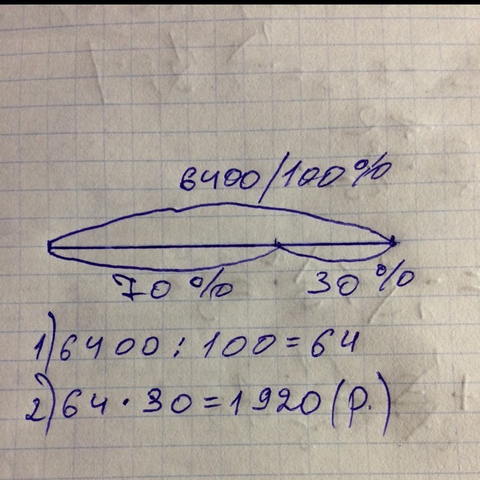 6400/100%
70% 30%
1) 6400 : 100 = 64
2) 64 · 30 = 1920 (р.)